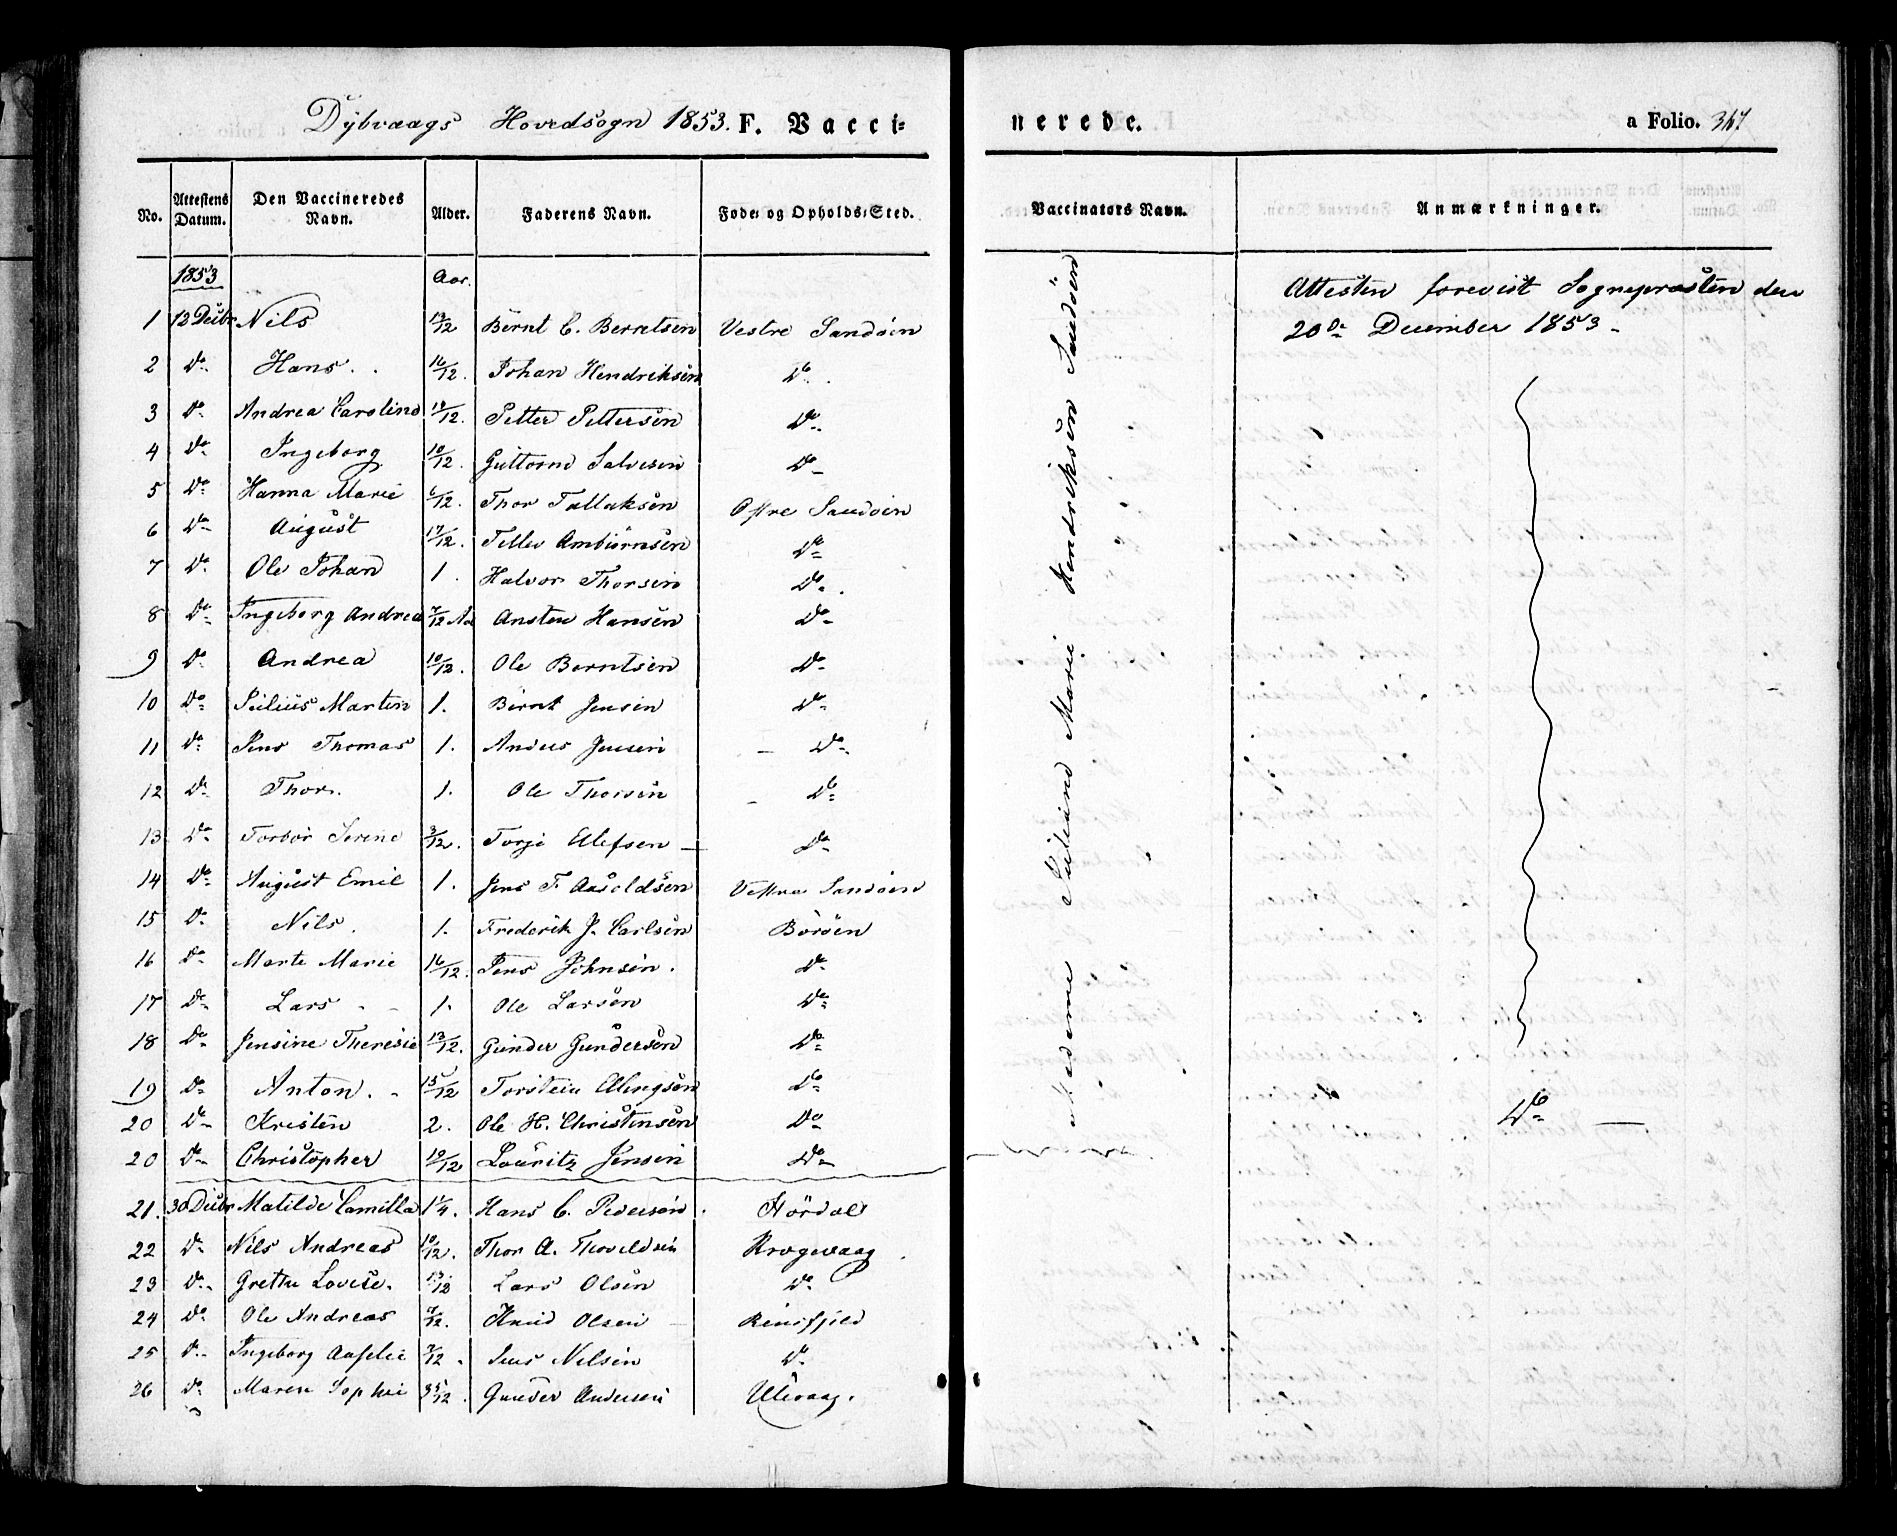 Dÿbvaags Hovedsogn 1853. F. Vacci-
nerede. a Folio. 367
No. Attestens Datum. Den Vaccineredes Navn. Alder. Faderens Navn. Føde- og Opholds-Sted. Vaccinators Navn. Anmærkninger.
1853 Aar.
Attesten forevist Sognepræsten den
20de December 1853 -
1 12 Decbr Nils /12 Bernt C. Berntsen Vestre Sandøen
2 Do Hans. 16/12. Johan Hendriksen Do
3 Do Andrea Caroline /12. Petter Pettersen Do
4 Do Ingeborg 10/12. Guttorm Salvesen Do
5 Do Hanna Marie 6/12. Thor Tallaksen Østre Sandøen
6 Do August 17/12. Tellev Ambiørnsen Do
7 Do Ole Johan 1. Halvor Thorsen Do
8 Do Ingeborg Andrea 7/12 Aa Ansten Hansen Do
9 Do Andrea 10/12. Ole Berntsen Do
10 Do Julius Martin 1. Bernt Jensen Do
11 Do Jens Thomas 1. Anders Jensen Do
12 Do Thor. 1. Ole Thorsen Do
13 Do Torbor Serine 3/12. Torje Ellefsen Do
14 Do August Emil 1. Jens T. Aasoldsen Vestre Sandøen
15 Do Nils. 1. Frederik J. Carlsen Börøen
16 Do Marte Marie 16/12. Jens Johnsen. Do
17 Do Lars 1. Ole Larsen Do
18 Do Jensine Theresie 13/12. Gunder Gundersen Do
19 Do Anton. 15/12 Torstein Ellingsen Do
20 Do Kristen 2. Ole H. Christensen Do
20 Do Christopher 10/12 Louritz Jensen Do
21. 30 Decbr Matilde Camilla 1 1/4. Hans C. Pedersen Hördal
22 Do Nils Andreas 10/12. Thor A. Thoveldsen Krogevaag
23 Do Grethe Lovise. /12 Lars Olsen Do
24 Do Ole Andreas 7/12. Knud Olsen
25 Do Ingeborg Aaselie 7/12. Jens Nilsen Do
26 Do Maren Sophie 35/12. Gunder Andersen Ulevaag.
Madame Juliane Marie Hendriksen Sandøen
Do